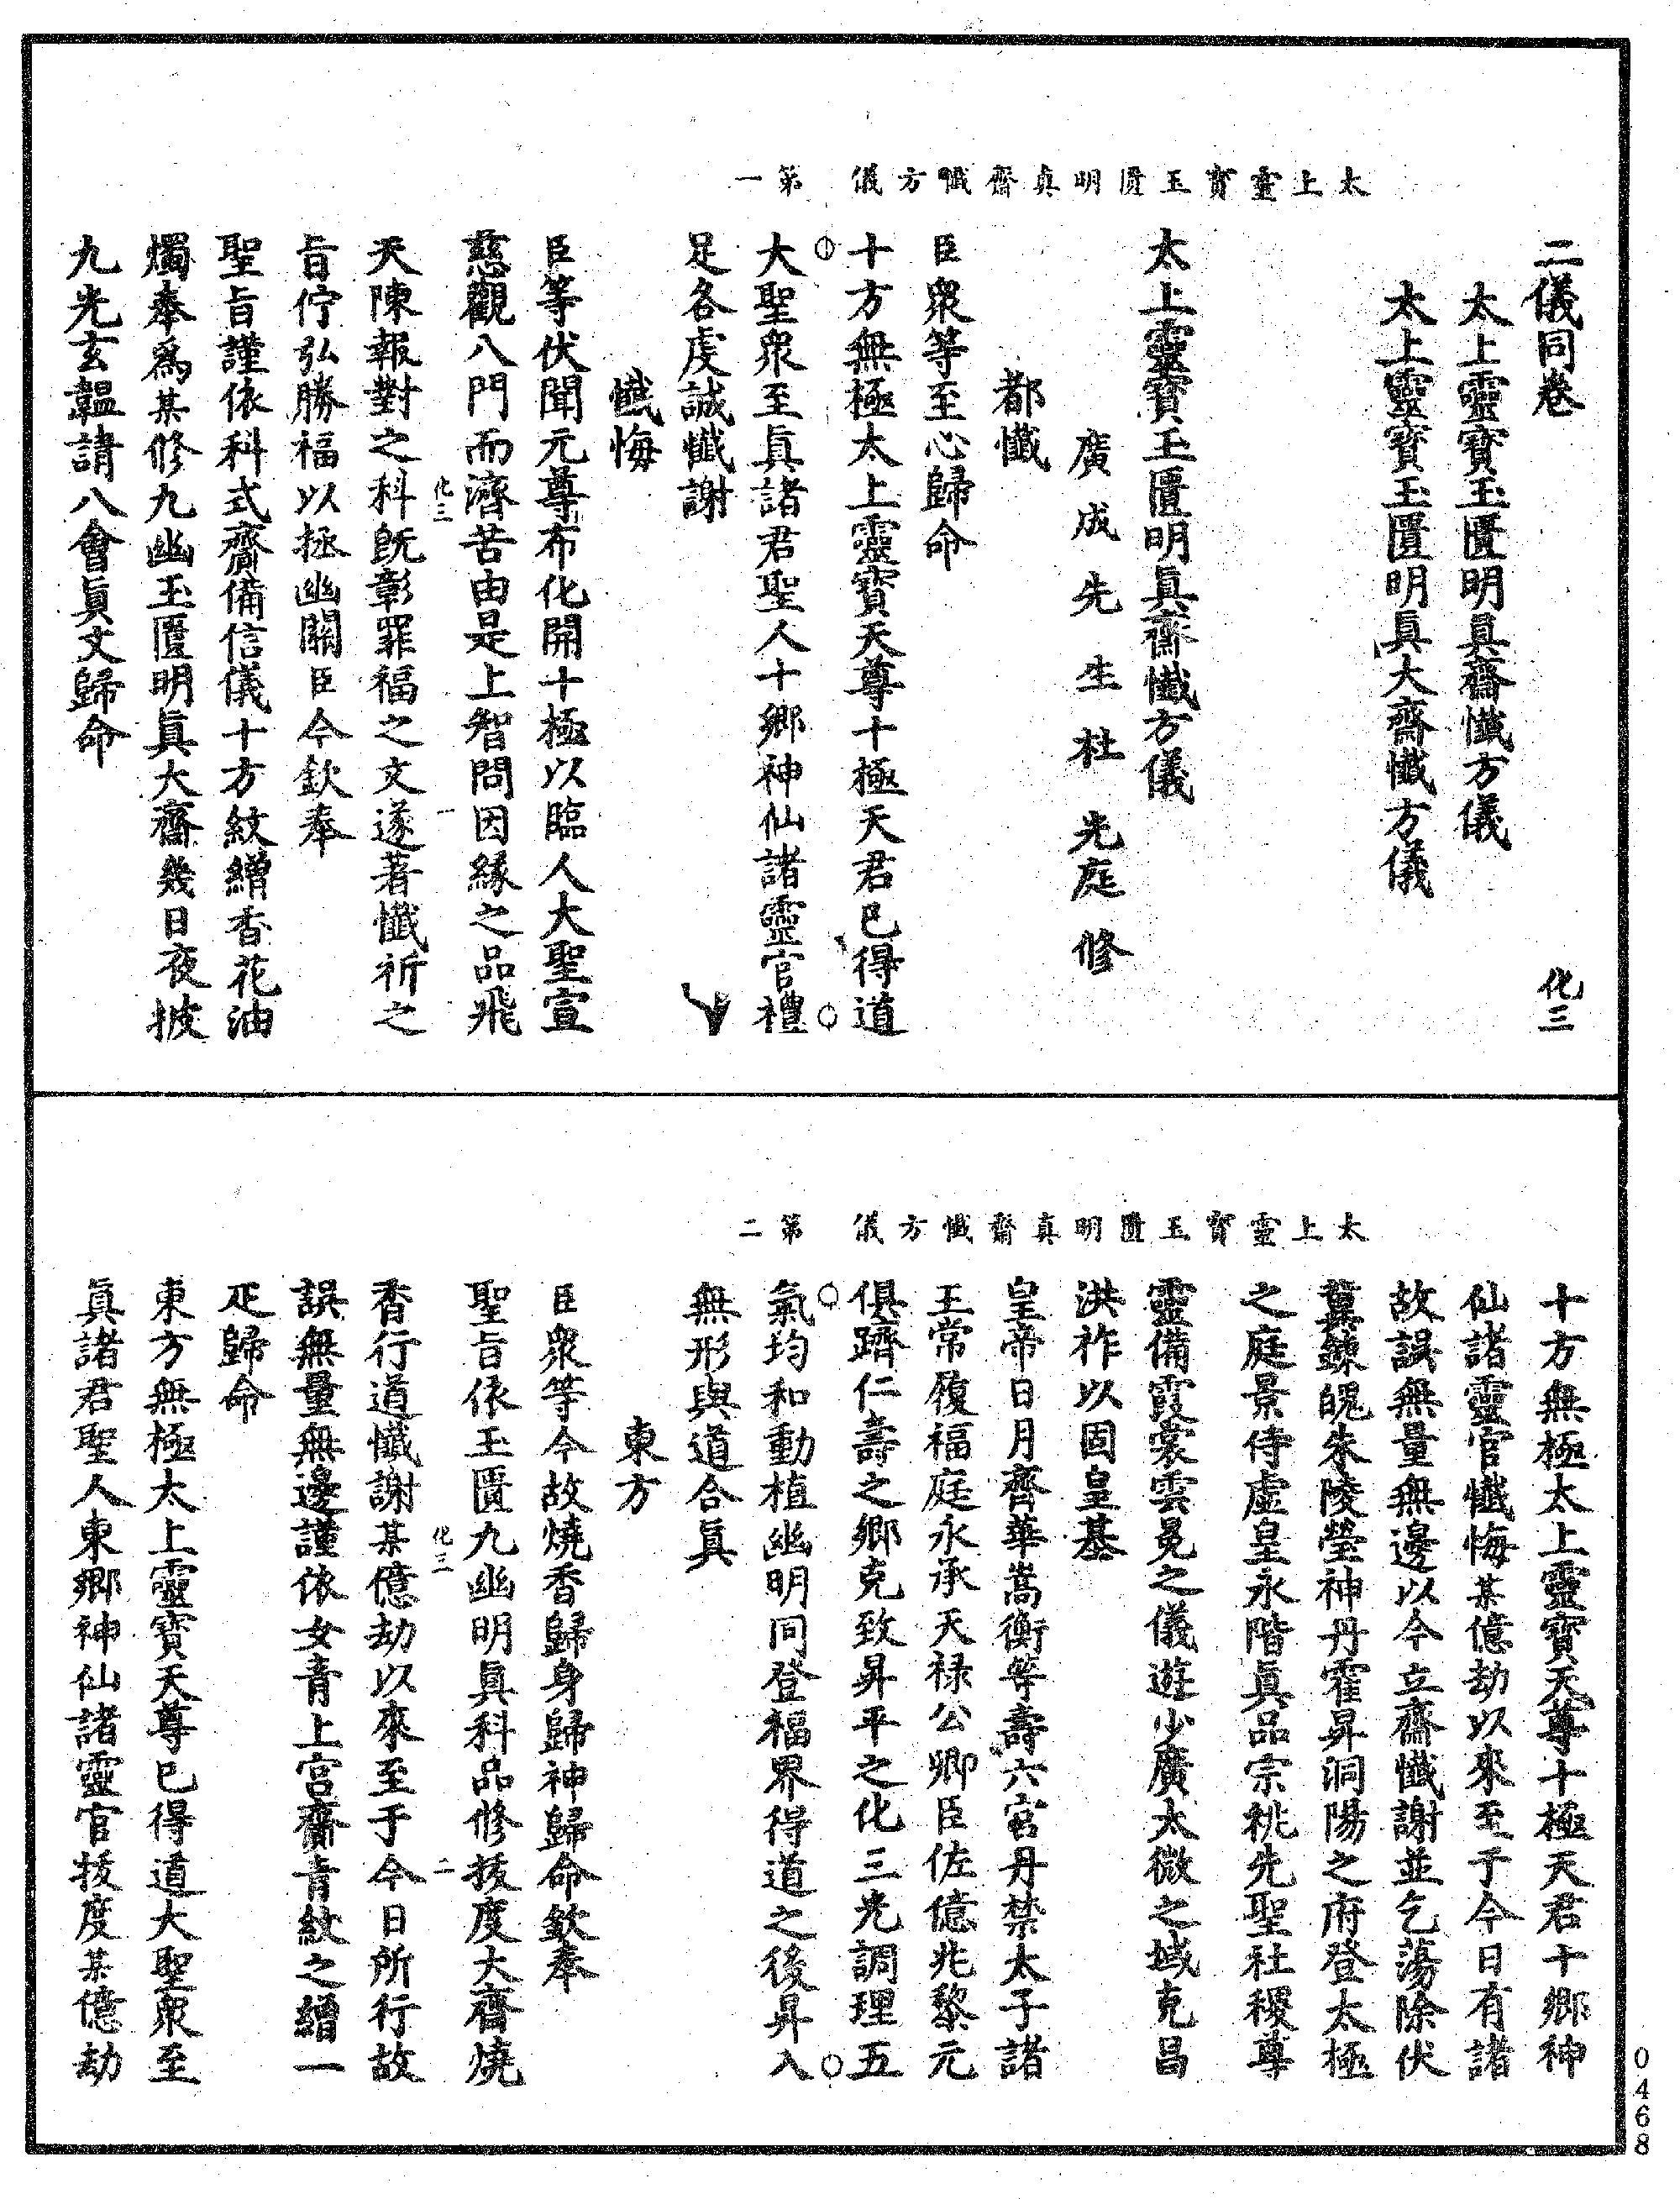 太上靈寶玉匱明真齋懺方儀　第一
二儀同卷　化三
太上靈寶玉匱明眞齋懺方儀
太上靈寶玉匱明眞大齋懺方儀
太上靈寶玉匱明眞齋懺方儀
廣成先生杜光庭修
都懺
臣衆等至心歸命
十方無極太上靈寶天尊十極天君已得道
大聖衆至眞諸君聖人十鄉神仙諸靈官禮
足各虔誠懺謝
懺悔
臣等伏聞元尊布化開十極以臨人大聖宣
慈觀八門而濟苦由是上智問因緣之品飛
化三　一
天陳報對之科旣彰罪福之文遂著懺祈之
旨佇弘勝福以拯幽關臣今欽奉
聖旨謹依科式齋備信儀十方紋繒香花油
燭奉爲某修九幽玉匱明眞大齋幾日夜披
九光玄韞請八會眞文歸命
太上靈寶玉匱明真齋懺方儀　第二
十方無極太上靈寶天尊十極天君十鄉神
仙諸靈官懺悔某億劫以來至于今日有諸
故誤無量無邊以今立齋懺謝並乞蕩除伏
冀鍊魄朱陵瑩神丹霍昇洞陽之府登太極
之庭景侍虛皇永階眞品宗祧先聖社稷尊
靈備霞裳雲冕之儀遊少廣太微之域克昌
洪祚以固皇基
皇帝日月齊華嵩衡等壽六宮丹禁太子諸
王常履福庭永承天祿公卿臣佐億兆黎元
俱躋仁壽之鄉克致昇平之化三光調理五
氣均和動植幽明同登福界得道之後昇入
無形與道合眞
東方
臣衆等今故燒香歸身歸神歸命欽奉
聖旨依玉匱九幽明眞科品修拔度大齋燒
化三　二
香行道懺謝某億劫以來至于今日所行故
誤無量無邊謹依女青上宮齋青紋之繒一
疋歸命
東方無極太上靈寶天尊已得道大聖衆至
眞諸君聖人東鄉神仙諸靈官拔度某億劫
0468